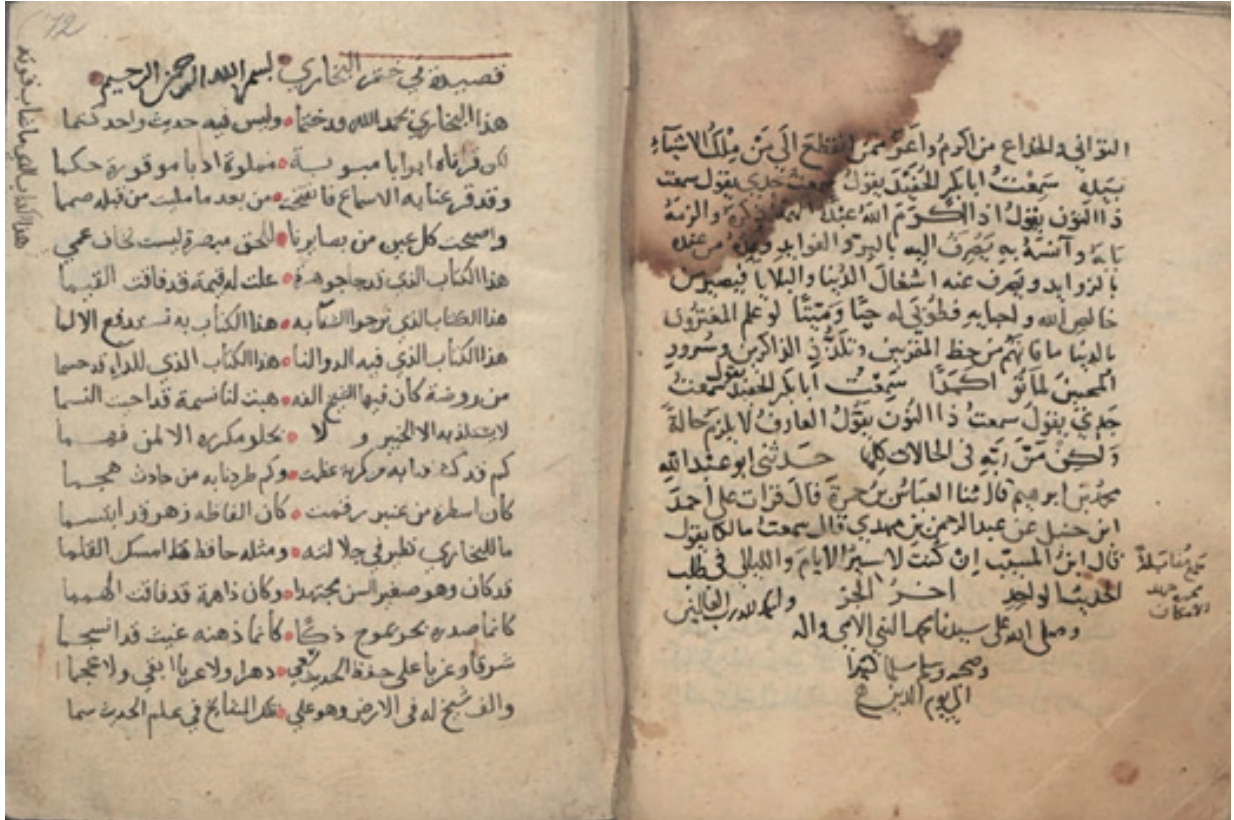 التواني والخداع من اكرم واعز ممن انقطع الى من ملك الاشياء
بيده سمعت ابا بكر الحفيد يقول سمعت جدي يقول سمعت
ذا النون يقول اذا اكرم الله عبدا الهمه ذكره والزمه
بابه وآنسه به يصرف اليه بالبر والفوايد ويمده من عنده
بالزوايد ويصرف عنه اشغال الدنيا والبلايا فيصير من
خالص الله واحبابه فطوبى له حيا وميتا لو علم المغترون
بالدنيا ما فاتهم من حظ المقربين وتلذذ الذاكرين وسرور
المحبين لماتوا كمدا سمعت ابا بكر الحفيد يقول سمعت
جدي يقول سمعت ذا النون يقول العارف لا يلزم حالة
ولكن من ربه في الحالات كلها حدثني ابو عبد الله
محمد بن ابرهيم قال ثنا العباس بن حمزة قال قرات على احمد
ابن حنبل عن عبد الرحمن بن مهدي قال سمعت مالكا يقول
قال ابن المسيب ان كنت لاسير الايام والليالي في طلب
الحديث الواحد اخر الجز والحمد لله رب العالمين
وصلى الله على سيدنا محمد النبي الامي واله
وصحبه وسلم تسليما كثيرا
الى يوم الدين
بلغ مقابلة
الامكان
72
قصيدة في ختم البخاري بسم الله الرحمن الرحيم
هذا البخاري بحمد الله قد ختما وليس فيه حديث واحد كتما
لكن قرأناه ابوابا مبوبة مملوة ادبا موقورة حكما
وقد قرعنا به الاسماع فانفتحت من بعد ما مليت من قبله صمما
واصبحت كل عين من بصايرنا للحق مبصرة ليست تخاف عمي
هذا الكتاب الذي قد جا جوهرة علت له قيمة قد فاقت القيما
هذا الكتاب الذي نرجوا الشفا به هذا الكتاب به نستدفع الالما
هذا الكتاب الذي فيه الدوا لنا هذا الكتاب الذي للداء قد حسما
من روضة كان فيها الشيخ الفه هبت لنا نسمة قد احيت النسما
لا يستلذ به الا الخبير ولا يحلو مكرره الا لمن فهما
كم قد كشفنا به من كربة عظمت وكم طردنا به من حادث هجما
كان اسطره من عنبر رقمت كان الفاظه زهر قد ابتسما
ما للبخاري نظير في جلالته ومثله حافظ ما امسك القلما
قد كان وهو صغير السن مجتهدا وكان ذا همة قد فاقت الهمما
كانما صدره بحر يموج ذكا كانما ذهنه غيث قد انسجما
شرقا وغربا على حفظ الحديث سعى دهرا ولا عربا ابقى ولا عجما
والف شيخ له في الارض وهو على تلك المشايخ في علم الحديث سما